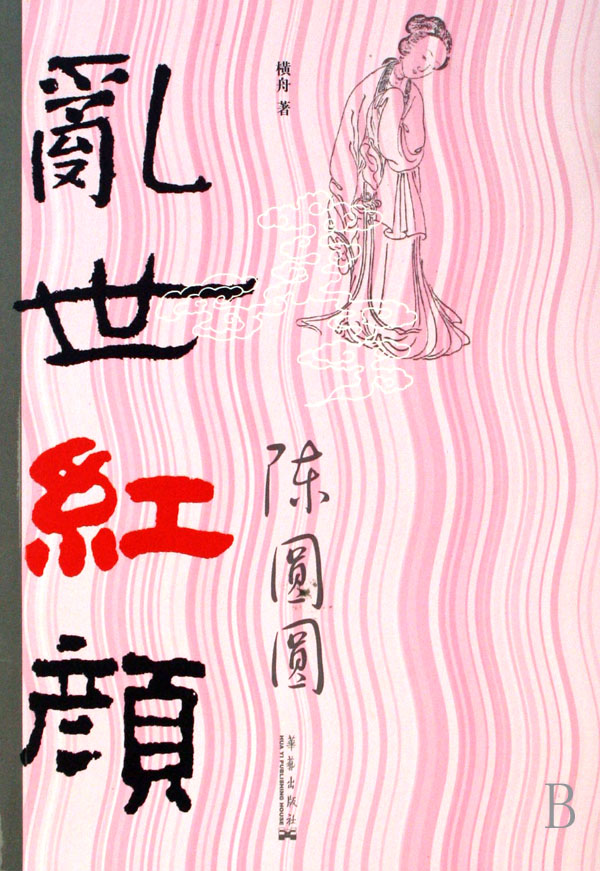 亂世紅顏
橫舟 著
陈圓圓
華藝出版社
HUA YI PUBLISHING HOUSE
B